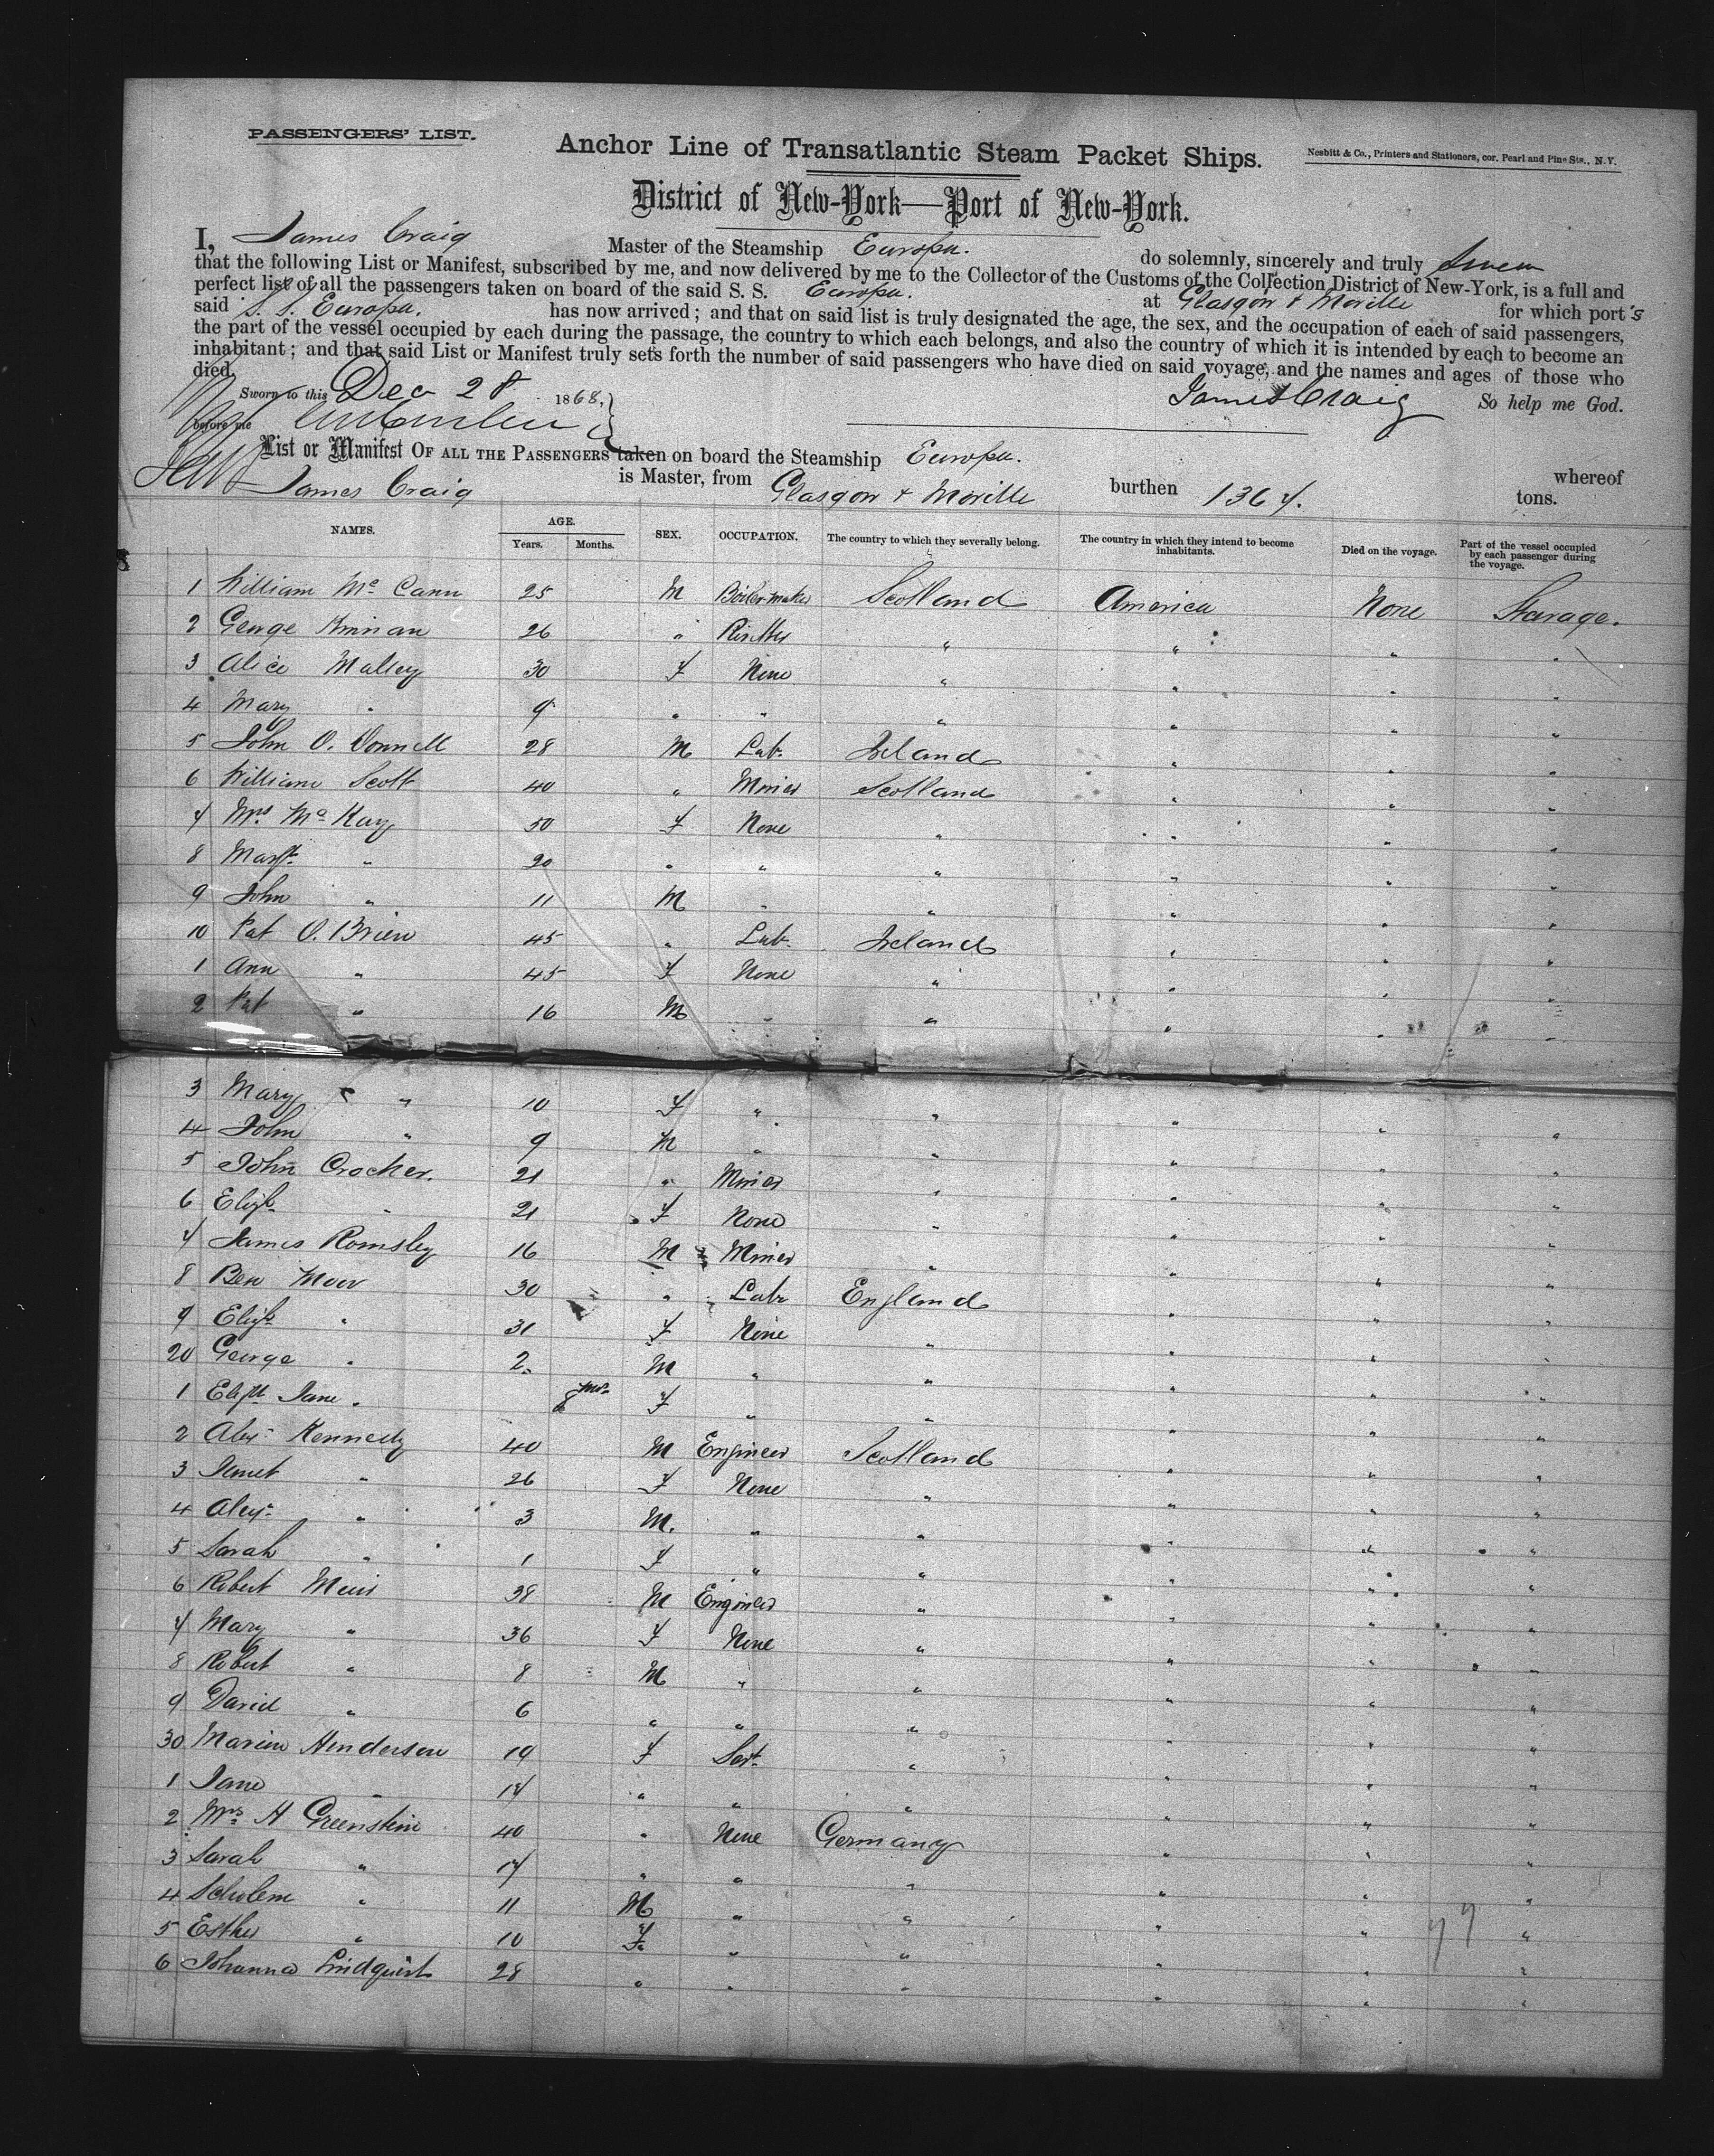 PASSENGERS' LIST.
Anchor Line of Transatlantic Steam Packet Ships.
Nesbitt & Co., Printers and Stationers, cor. Pearl and Pine Sts., N.Y.
District of New-York—Port of New-York.
I, James Craig Master of the Steamship Europa. do solemnly, sincerely and truly Swear
that the following List or Manifest, subscribed by me, and now delivered by me to the Collector of the Customs of the Collection District of New-York, is a full and
perfect list of all the passengers taken on board of the said S. S. Europa. at Glasgow & Moville for which port's
said S. S. Europa. has now arrived; and that on said list is truly designated the age, the sex, and the occupation of each of said passengers,
the part of the vessel occupied by each during the passage, the country to which each belongs, and also the country of which it is intended by each to become an
inhabitant; and that said List or Manifest truly sets forth the number of said passengers who have died on said voyage, and the names and ages of those who
died.
Sworn to this Dec 28 1868, James Craig So help me God.
before me
List or Manifest OF ALL THE PASSENGERS taken on board the Steamship Europa. whereof
James Craig is Master, from Glasgow & Moville burthen 1364. tons.
NAMES. AGE. Years. Months. SEX. OCCUPATION. The country to which they severally belong. The country in which they intend to become inhabitants. Died on the voyage. Part of the vessel occupied by each passenger during the voyage.
1 William Mc Cann 25 M Boilermaker Scotland America None Stearage.
2 George 26 " " " " "
3 Alice Malley 30 F None " " " "
4 Mary " 9 " " " " " "
5 John O. Donnell 28 M Lab. Ireland " " "
6 William Scott 40 " Miner Scotland " " "
7 Mrs. Mc Kay 50 F None " " " "
8 Margt. " 20 " " " " " "
9 John " 11 M " " " " "
10 Pat O. Brien 45 " Lab. Ireland " " "
1 Ann " 45 F None " " " "
2 Pat " 16 M " " " " "
3 Mary " 10 F " " " " "
4 John " 9 M " " " " "
5 John Crocker. 21 " Miner " " " "
6 Elizh. " 21 F None " " " "
7 James Romsley 16 M Miner " " " "
8 Ben Moor 30 " Labr England " " "
9 Elizh. " 31 F None " " " "
20 George " 2 M " " " " "
1 Elizth Jane " 8 mos. F " " " " "
2 Alex. Kennedy 40 M Engineer Scotland " " "
3 Janet " 26 F None " " " "
4 Alex. " 3 M. " " " " "
5 Sarah " 1 F " " " " "
6 Robert Muir 38 M Engineer " " " "
7 Mary " 36 F None " " " "
8 Robert " 8 M " " " " "
9 David " 6 " " " " " "
30 Marion Henderson 19 F Sert. " " " "
1 Jane " 17 " " " " " "
2 Mrs. H Greenstein 40 " None Germany " " "
3 Sarah " 17 " " " " " "
4 Scholem " 11 M " " " " "
5 Esther " 10 F " " " " "
6 Johanna Lindquist 28 " " " " " "